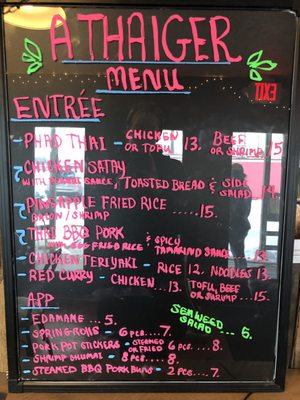 A THAIGER
MENU
EXIT
ENTRÉE
- PHAD THAI - CHICKEN OR TOFU 13. BEEF OR SHRIMP 15
CHICKEN SATAY
WITH PEANUT SAUCE, TOASTED BREAD & SIDE SALAD 14.
PINEAPPLE FRIED RICE
BACON / SHRIMP ..... 15.
THAI BBQ PORK
WITH EGG FRIED RICE & SPICY TAMARIND SAUCE ... 13.
- CHICKEN TERIYAKI - RICE 12. NOODLES 13.
- RED CURRY - CHICKEN ... 13. TOFU, BEEF OR SHRIMP ... 15.
APP
- EDAMAME ... 5.
- SPRING ROLLS - 6 PCS ... 7.
- PORK POT STICKERS - STEAMED OR FRIED 6 PCS ... 8.
- SHRIMP SHUMAI - 8 PCS ... 8.
- STEAMED BBQ PORK BUNS - 2 PCS ... 7.
SEAWEED
SALAD ... 5.